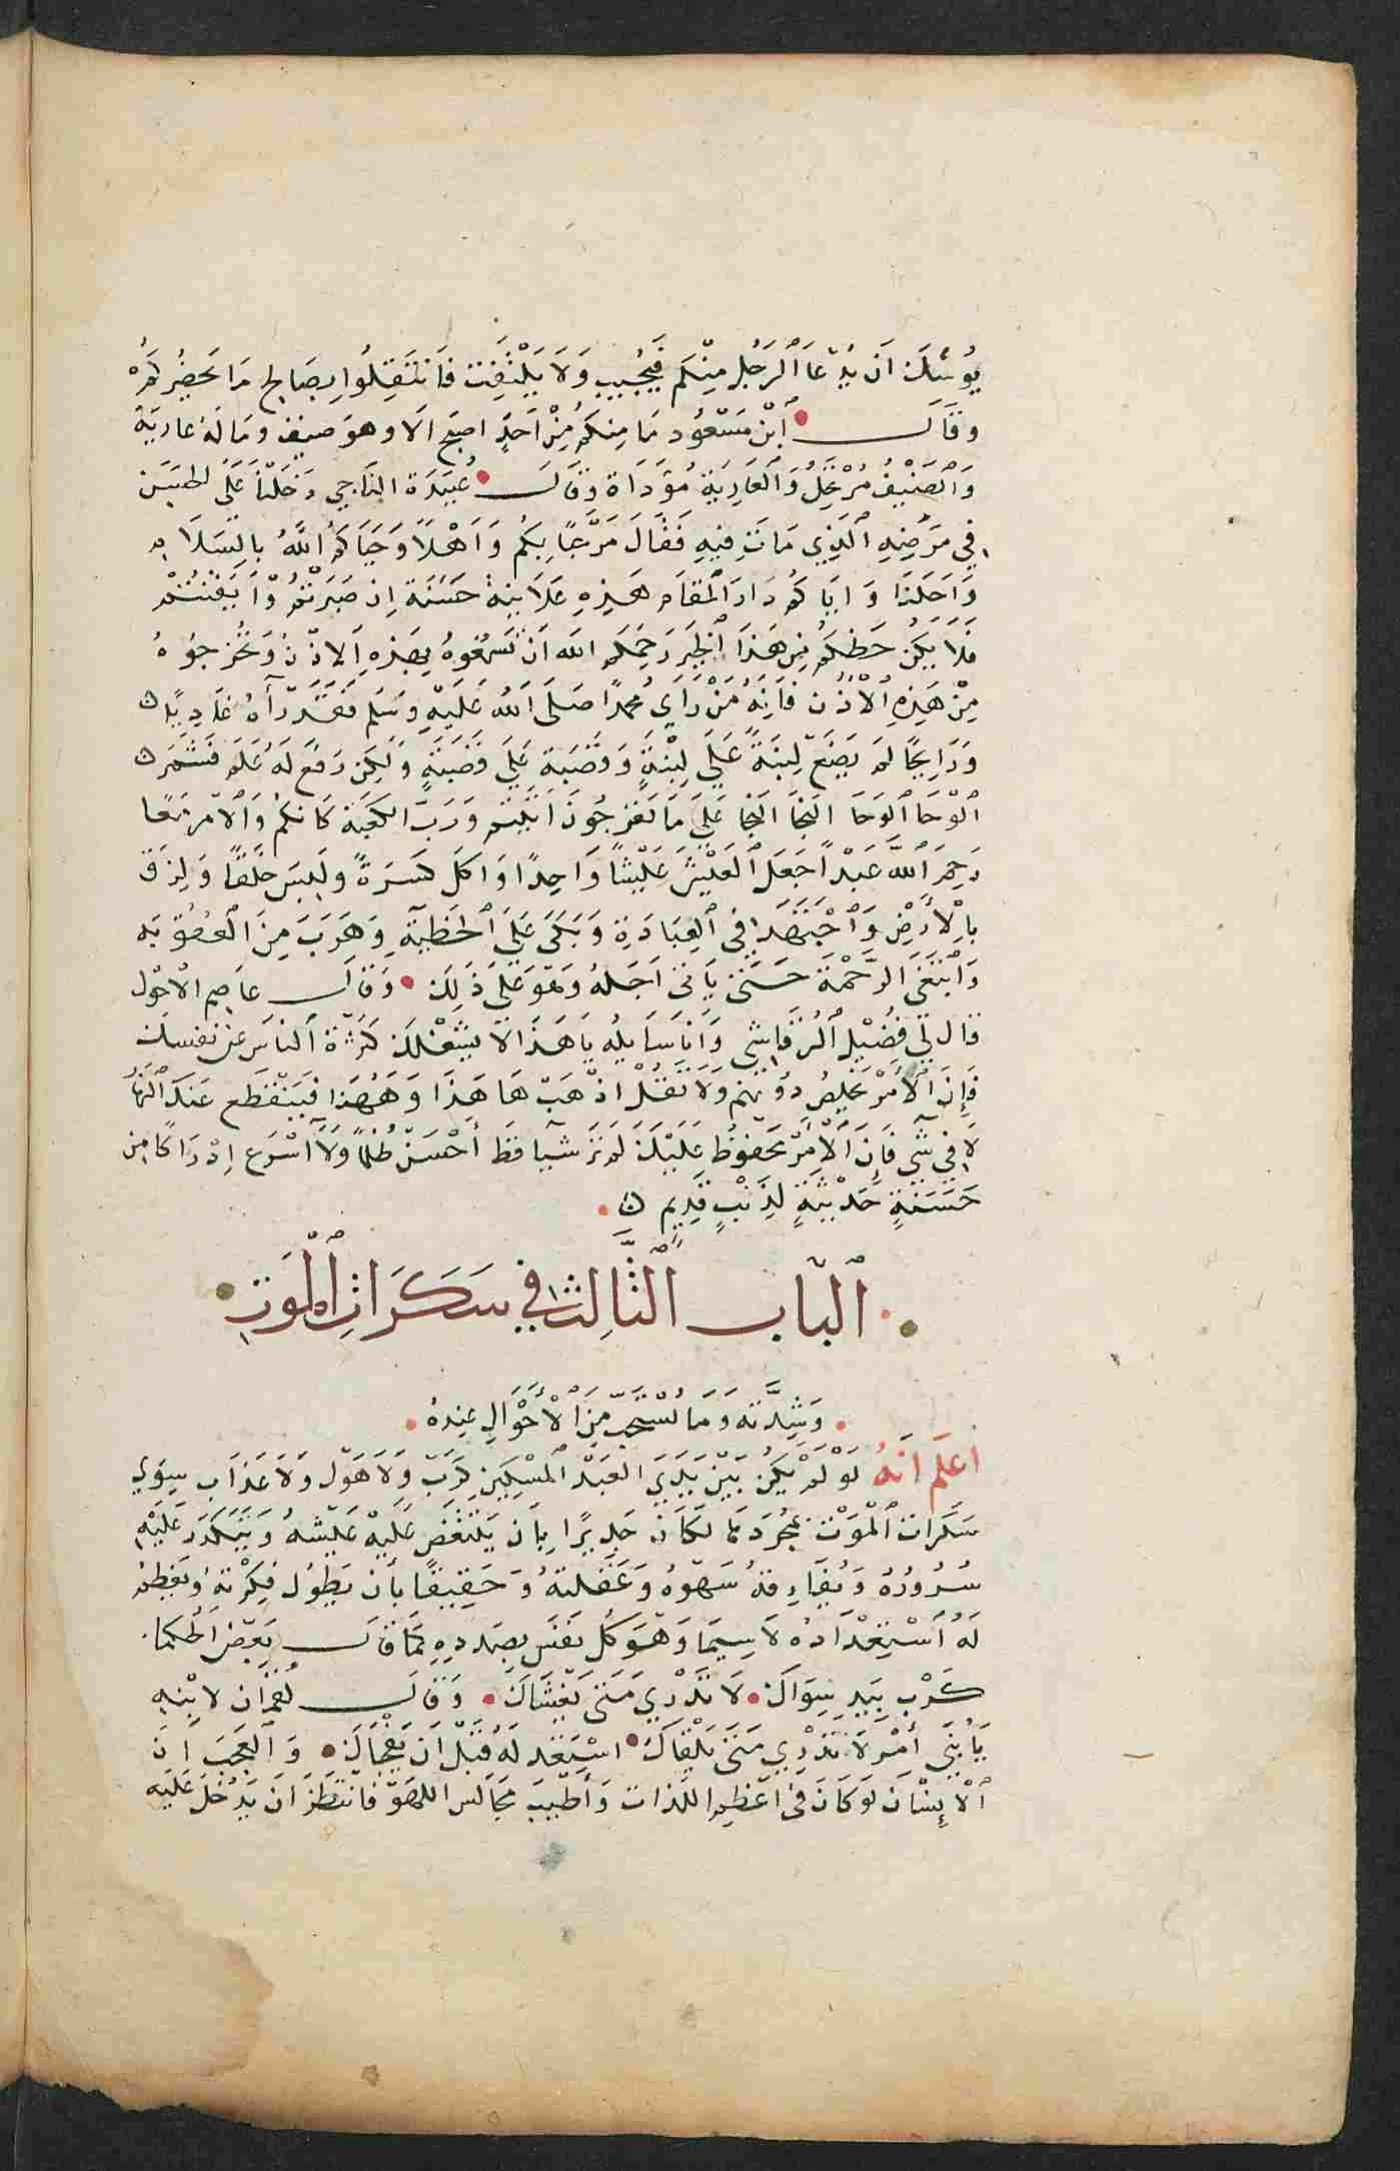 يُوشَكُ اَن يُدْعَا اَلرَجُل مِنْكُم فَيُجُيبِ وَلَا يَلْتَفِت فَانتَقِلُوا بِصَالِح مَا يَحضُركُمْ
وقَالَ • اَبْن مَسْعُود مَا مِنكُم مِنْ اَحَدٍ اصبَح الَا وهوَ ضيف ومَا لَهُ عَاريَةٌ
وَاْلضَيْفُ مُرْتَحِلُ وَالعَارِيَة مُؤدَاة وَقَالَ • عُبَيدَة النَاجي دَخَلنَا عَلَى الحسَن
في مَرَضِهِ الَذِي مَاتَ فِيهِ فَقَالَ مَرْحَبًا بِكُم وَاَهْلاً وَحَيَاكُمُ اللَّهُ بِالسَلَام
وَاَحَلَنَا وَاِيَاكُم دَارَ المُقَام هَذِهِ عَلَانِيَة حَسَنَة اِن صَبَرتُمْ وَاَيقَنتُمْ
فَلَا يَكُن حَظكُم مِن هَذَا الخَبَر رَحِمَكُم الله اَن تَسمَعُوهُ بِهَذِهِ الاذن وَتُخرِجُوهُ
مِنْ هَذِهِ الاُذُن فَاِنَهُ مَنْ رَاَي مُحمدًا صَلَى اَللهُ عَلَيْهِ وَسَلم فَقَد رَآهُ غَادِيًا
وَرَايِحًا لَم يَضَع لَبِنَةً عَلَي لَبِنَةٍ وَقَصَبَة عَلَي قَصَبَةٍ وَلَكِن رُفعَ لَهُ عَلَم فَشَمَر
الوَحَا الوَحَا النَجَا النَجَا عَلَي مَا تَعَرجُونَ اُتِيتُم وَرَبِ الكَعبَة كَانكُم وَالاَمر مَعًا
رَحِمَ اَللَّه عَبْداً جَعَلَ اْلعَيْشَ عَيْشًا وَاحِدًا وَاَكَلَ كِسرَةً وَلَبِسَ خَلَقًا وَلزقَ
بِاْلأَرْضِ وَاجْتَهَدَ فِي العِبَادَةِ وَبَكَى عَلَى الخَطِيَةِ وَهَرَبَ مِنَ العُقُوبَة
وَابْتَغَى الرَّحْمَة حَتَى يَاتى اَجَلهُ وَهوَ عَلَى ذَلِكَ • وَقَالَ عَاصِم الاحْوَل
قال لي فُضَيْل الرُقَاشِي وَانَا سَايلُه يَا هَذَا لَا يَشْغَلَنَكَ كَثرَة النَاس عَن نفسكَ
فَاِنَ الاَمْر يَخلصُ دُونَهم وَلَا تَقُلْ اذْهَب هَاهَذَا وَهَهُنَا فَيَنْقَطع عَنكَ النَهَار
لَا فِي شَي فَاِنَ الاَمْر مَحفوظ عَلَيْكَ لَم تَرَ شَيا قط أَحْسَن طَلبًا وَلَا اَسْرَع اِدْرَاكًا مِن
حَسَنَةٍ حَدِيْثَةٍ لِذَنْبٍ قَدِيم ۞ •
• اْلبَاب الثَّالِث في سَكَرَاتِ اْلمَوَتِ •
• وَشِدَّته وَمَا يُسْتَحَبّ مِنَ اْلأَحْوَالِ عِندهُ •
اعلَم اَنهُ لَوْ لَمْ يَكُن بَيْنَ يَدَي العَبْد المسْكِين كَرب وَلَا هَوْل وَلَا عَذَاب سِوَي
سَكَرَات اْلمَوْت بمُجَرَدهَا لكَانَ جَدِيرًا بِاَن يَتَنَغَص عَلَيْهِ عَيْشهُ وَيَتَكَدَر عَلَيْهِ
سُرُورُهُ وَيُفَارِقهُ سَهْوهُ وَغَفلتهُ وَحَقِيقًا بأن يَطُول فِكْرتهُ وَيَعْظم
لَهُ اَسْتِعْدَادهُ لَا سِيمَا وَهْوَ في كل نَفَس بصَددِهِ كَمَا قَالَ بَعْض الحُكمَا
كَرْب بِيَدِ سِوَاكَ • لَا تَدْرِي مَتَى يَغْشَاكَ • وَقَالَ لُقمَان لابْنِهِ
يَا بُنَي أَمْر لَا تَدْرِي مَتَى يَلْقَاكَ • اسْتَعِد لَهُ قَبْل اَن يَفْجَأَكَ • وَالعَجَب اَنَ
اَلْاِنسَان لَو كَانَ فى اَعْظَمِ اللَذات وَأَطْيَب مَجَالس اللهو فَانْتَظَرَ اَن يَدْخُلَ عَلَيه